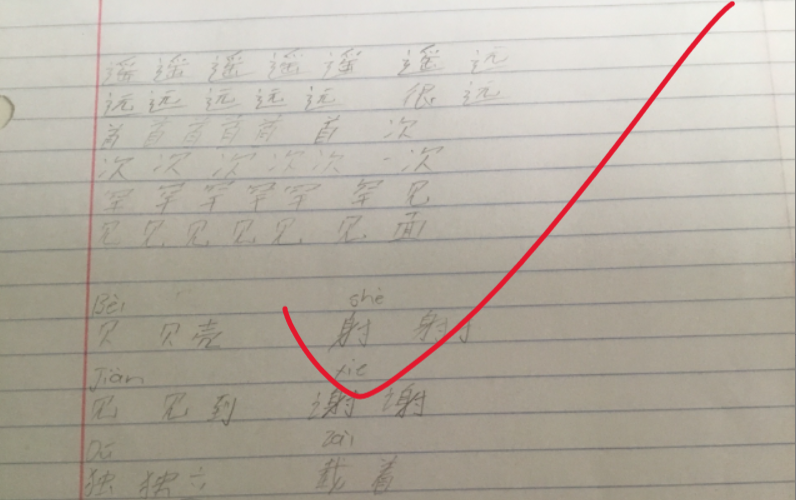 遥 遥 遥 遥 遥 遥 远
远 远 远 远 远 很 远
首 首 首 首 首 首 次
次 次 次 次 次 一 次
罕 罕 罕 罕 罕 罕 见
见 见 见 见 见 见 面
Bèi shè
贝 贝 壳 射 射
Jiàn xie
见 见 到 谢 谢
Dú zài
独 独 立 载 着